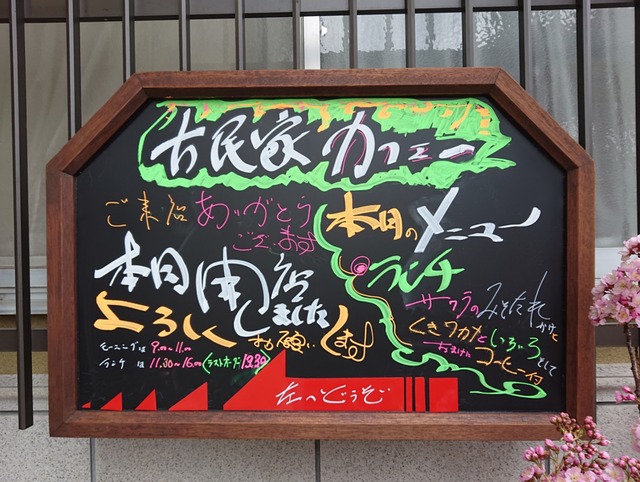 古民家 カフェー
ご来店 ありがとう
ございます
本日 開店しました
よろしく お願いします
モーニングは 9.00~11.00
ランチ は 11.30~16.00 (ラストオーダー
本日のメニュー
ランチ
サクラの
かけと
として
コーヒー付
左へどうぞ